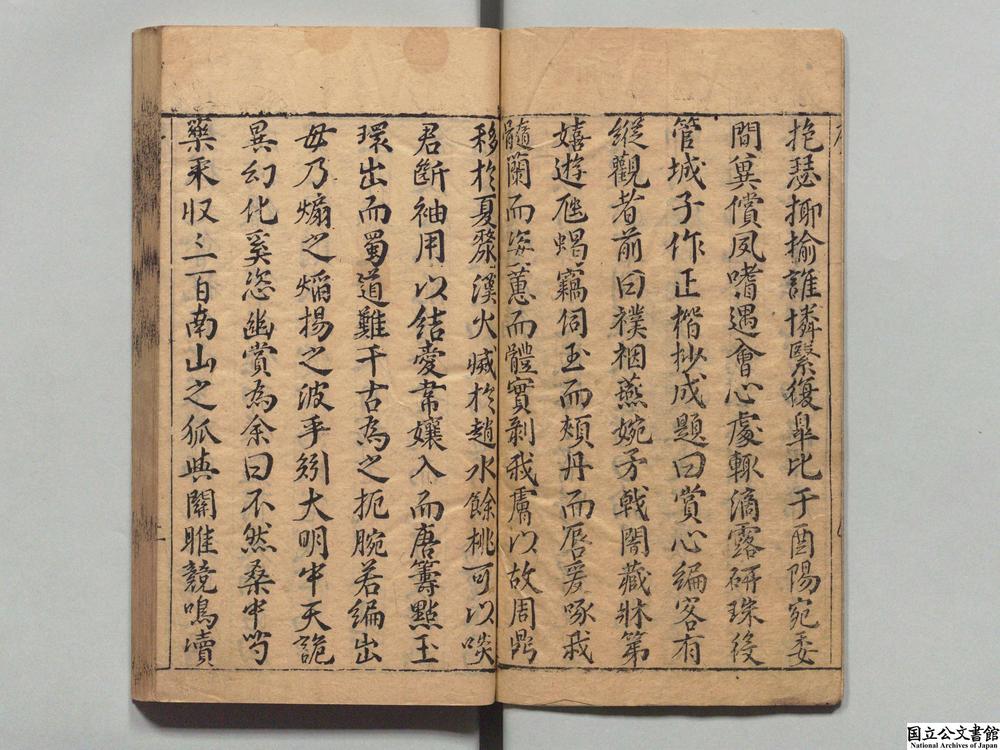 抱瑟揶揄誰憐緊復臯比于酉陽宛委
間冀償夙嗜遇會心處輒滴露研珠後
管城子作正楷抄成題曰賞心編客有
縱觀者前曰襆裀燕婉矛戟闇藏牀第
嬉遊虺蝎竊伺玉而頰丹而唇爰啄我
髓蘭而姿蕙而體實剥我膚以故周鼎
移於夏漦漢火滅於趙水餘桃可以啖
君斷袖用以結愛常孃入而唐籌點玉
環出而蜀道難千古為之扼腕若編出
毋乃煽之焰揚之波乎矧大明中天詭
異幻化奚恣幽賞為余曰不然桑中芍
藥采収三百南山之狐與關雎競鳴讀
国立公文書館
National Archives of Japan